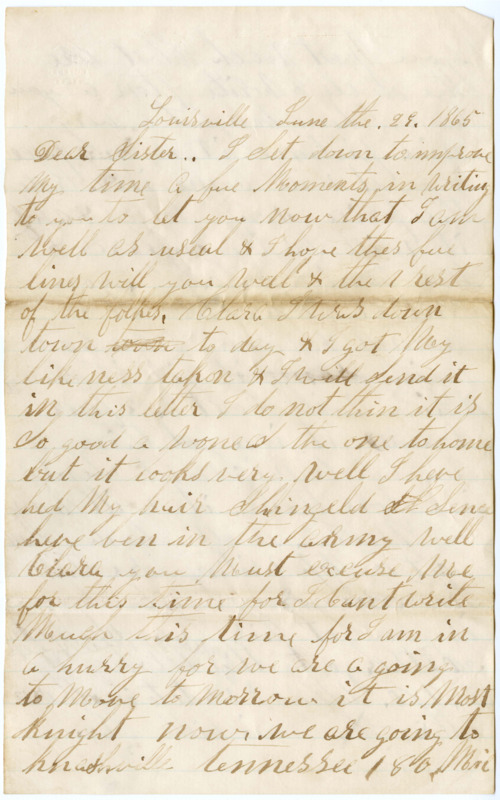 Louisville June the. 29. 1865
Dear Sister.. I Set down to improve
My time a fue Moments in writing
to you to let you now that I am
Well as useal & I hope thes fue
lines will you Well & the rest
of the folkes. Clara I was down
town to day & I got My
likeness tapon & I will Send it
in this letter I do not thin it is
So good a wone as the one to home
but it looks very Well I heve
hed My hair Shingeld Since
heve ben in the army Well
Clara you Must excuse Me
for this time for I Cant write
Much this time for I am in
a hurry for we are a going
to Move to Morrow it is Most
Knight now we are going to
knashville tennessee 180 Mil